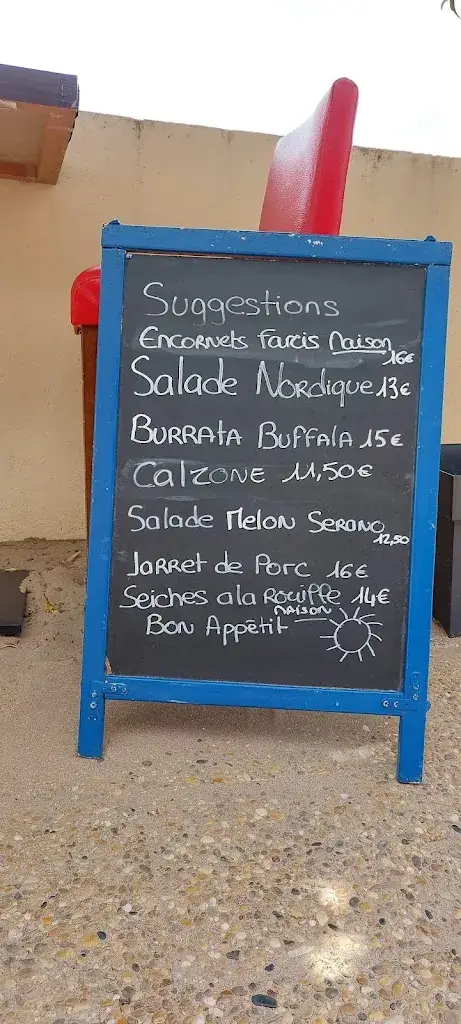 Suggestions
Encornets Farcis Maison
16€
Salade Nordique 13€
Burrata Buffala 15€
Calzone 11,50€
Salade Melon Serano
12,50
Jarret de Porc 16€
Seiches a la Rouiffe 14€
Maison
Bon Appêtit